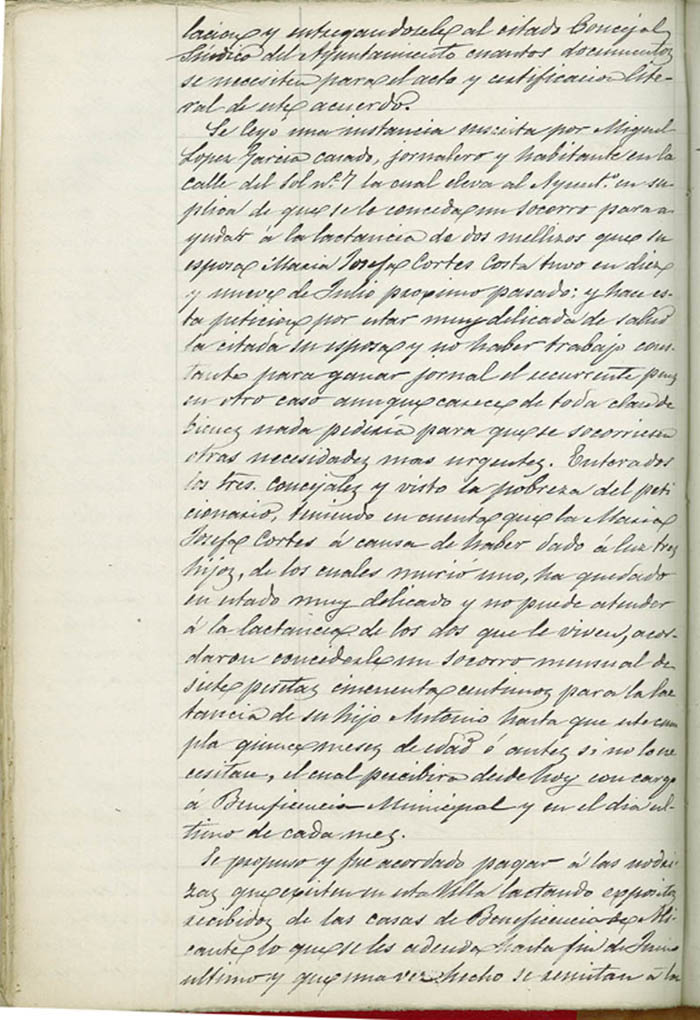 lacion y entregandosele al citado Concejal
Síndico del Ayuntamiento cuantos documentos
se necesiten para el acto y certificacion lite-
ral de este acuerdo.
Se leyo una instancia suscrita por Miguel
Lopez Garcia casado, jornalero y habitante en la
calle del Sol nº 7 la cual eleva al Ayuntº en su
plica de que se le conceda un socorro para a-
yudar á la lactancia de dos mellizos que su
esposa Maria Josefa Cortes Costa tuvo en diez
y nueve de Julio proximo pasado: y hace es-
ta peticion por estar muy delicada de salud
la citada su esposa y no haber trabajo cons-
tante para ganar jornal el recurrente pues
en otro caso aunque carece de toda clase de
bienes nada pediria para que se socorriesen
otras necesidades mas urgentes. Enterados
los tres concejales y visto la pobreza del peti
cionario, teniendo en cuenta que la Maria
Josefa Cortes á causa de haber dado á luz tres
hijos, de los cuales murió uno, ha quedado
en estado muy delicado y no puede atender
á la lactancia de los dos que le viven, acor-
daron concederle un socorro mensual de
siete pesetas cincuenta centimos para la lac
tancia de su hijo Antonio hasta que este cum
pla quince meses de edad ó antes si no lo ne
cesitase, el cual percibira desde hoy con cargo
á Beneficencia Municipal y en el dia ul-
timo de cada mes.
Se propuso y fue acordado pagar á las nodri-
zas que existen en esta Villa lactando expositos
recibidos de las casas de Beneficencia de Ali-
cante lo que se les adeuda hasta fin de Junio
ultimo y que una vez hecho se remitan á la